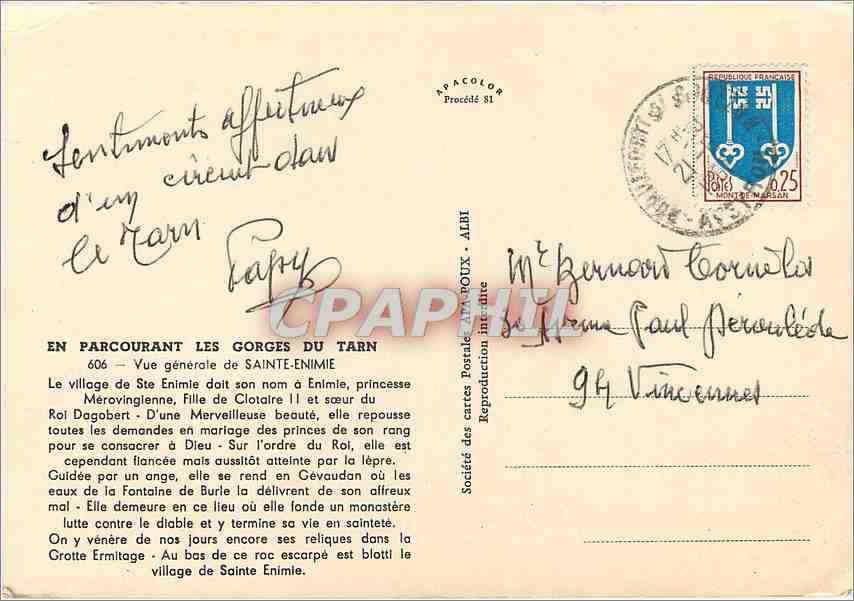 APACOLOR
Procédé 81
RÉPUBLIQUE FRANÇAISE
POSTES 0,25
MONT-DE-MARSAN
17H
21
AVEYRON
Sentiments affectueux
d'un circuit dans
le Tarn
Mr Bernard
Avenue Paul Déroulède
94 Vincennes
CPAPHIL
Société des cartes Postales APA-POUX - ALBI
Reproduction interdite
EN PARCOURANT LES GORGES DU TARN
606 — Vue générale de SAINTE-ENIMIE
Le village de Ste Enimie doit son nom à Enimie, princesse
Mérovingienne, Fille de Clotaire II et sœur du
Roi Dagobert - D'une Merveilleuse beauté, elle repousse
toutes les demandes en mariage des princes de son rang
pour se consacrer à Dieu - Sur l'ordre du Roi, elle est
cependant fiancée mais aussitôt atteinte par la lèpre.
Guidée par un ange, elle se rend en Gévaudan où les
eaux de la Fontaine de Burle la délivrent de son affreux
mal - Elle demeure en ce lieu où elle fonde un monastère
lutte contre le diable et y termine sa vie en sainteté.
On y vénère de nos jours encore ses reliques dans la
Grotte Ermitage - Au bas de ce roc escarpé est blotti le
village de Sainte Enimie.